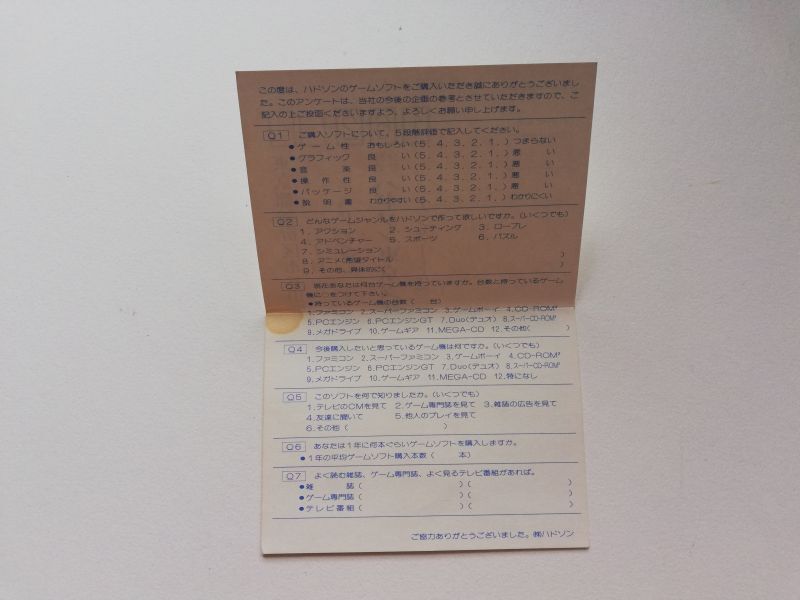 この度は、ハドソンのゲームソフトをご購入いただき誠にありがとうございまし
た。このアンケートは、当社の今後の企画の参考とさせていただきますので、ご
記入の上ご投函くださいますよう、よろしくお願い申し上げます。
Q1 ご購入ソフトについて、5段階評価で記入してください。
●ゲーム性 おもしろい(5．4．3．2．1．)つまらない
●グラフィック 良い(5．4．3．2．1．)悪い
●音楽 良い(5．4．3．2．1．)悪い
●操作性 良い(5．4．3．2．1．)悪い
●パッケージ 良い(5．4．3．2．1．)悪い
●説明書 わかりやすい(5．4．3．2．1．)わかりにくい
Q2 どんなゲームジャンルをハドソンで作って欲しいですか。(いくつでも)
1．アクション 2．シューティング 3．ロープレ
4．アドベンチャー 5．スポーツ 6．パズル
7．シミュレーション
8．アニメ(希望タイトル )
9．その他、具体的に( )
Q3 現在あなたは何台ゲーム機を持っていますか。台数と持っているゲーム
機に○をつけて下さい。
●持っているゲーム機の台数( 台)
1.ファミコン 2.スーパーファミコン 3.ゲームボーイ 4.CD-ROM²
5.PCエンジン 6.PCエンジンGT 7.Duo(デュオ) 8.スーパーCD-ROM²
9.メガドライブ 10.ゲームギア 11.MEGA-CD 12.その他( )
Q4 今後購入したいと思っているゲーム機は何ですか。(いくつでも)
1.ファミコン 2.スーパーファミコン 3.ゲームボーイ 4.CD-ROM²
5.PCエンジン 6.PCエンジンGT 7.Duo(デュオ) 8.スーパーCD-ROM²
9.メガドライブ 10.ゲームギア 11.MEGA-CD 12.特になし
Q5 このソフトを何で知りましたか。(いくつでも)
1.テレビのCMを見て 2.ゲーム専門誌を見て 3.雑誌の広告を見て
4.友達に聞いて 5.他人のプレイを見て
6.その他( )
Q6 あなたは1年に何本ぐらいゲームソフトを購入しますか。
●1年の平均ゲームソフト購入本数( 本)
Q7 よく読む雑誌、ゲーム専門誌、よく見るテレビ番組があれば。
●雑誌( )( )
●ゲーム専門誌( )( )
●テレビ番組( )( )
ご協力ありがとうございました。㈱ハドソン